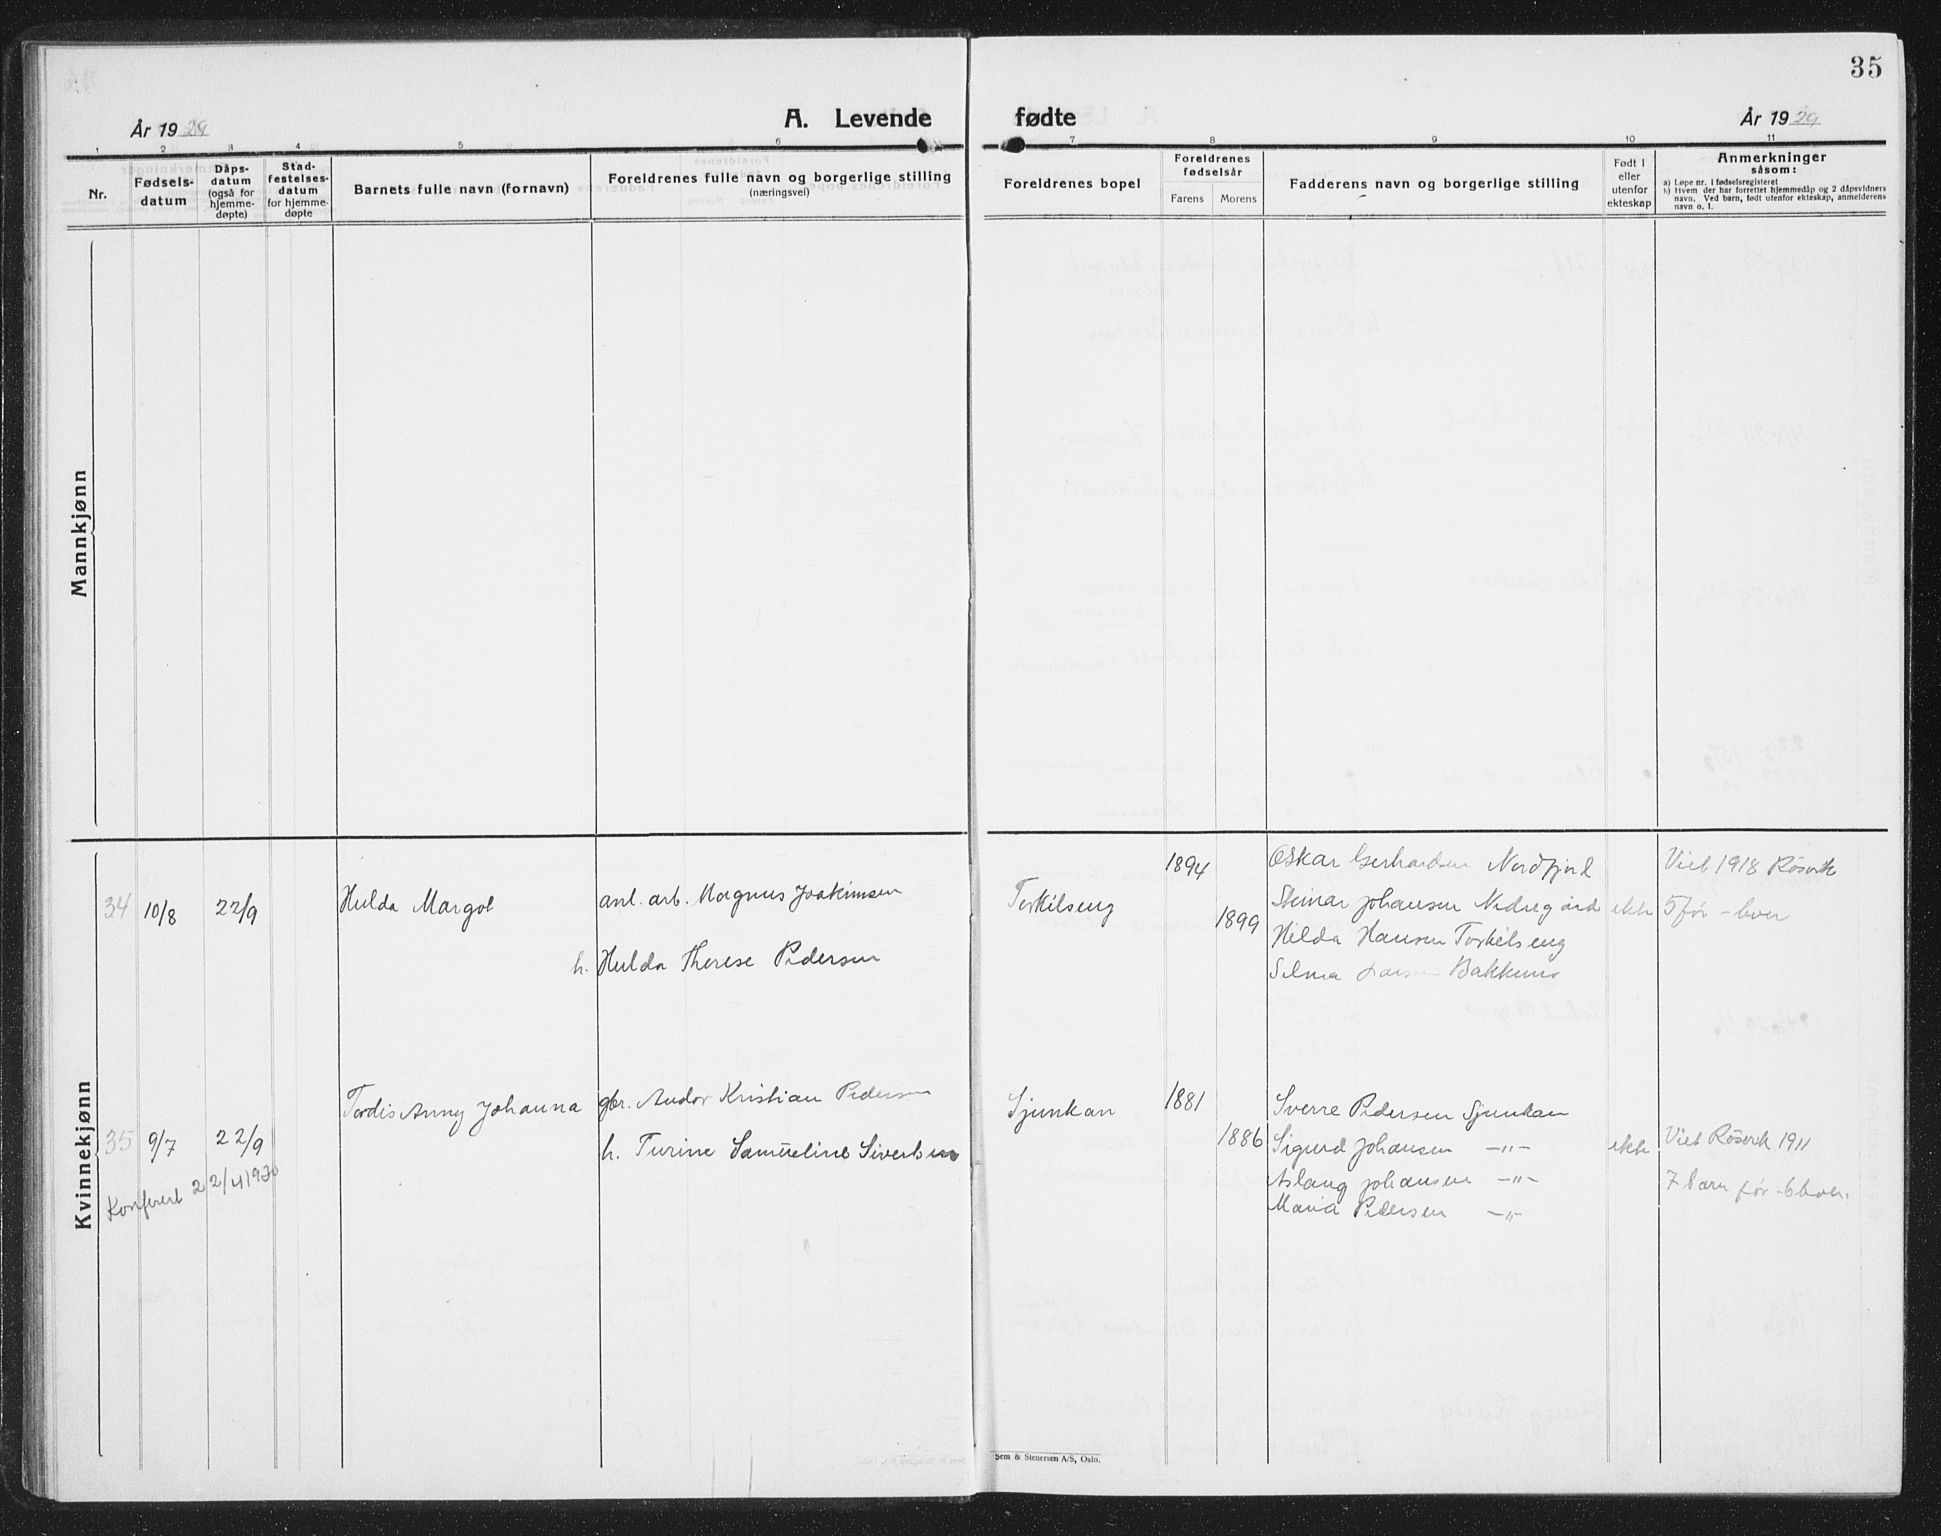 35
År 1929
A. Levende
fødte
År 1929
1 2 3 4 5 6 7 8 9 10 11
Nr.
Fødsels-
datum
Dåps-
datum
(også for
hjemme-
døpte)
Stad-
festelses-
datum
for hjemme-
døpte
Barnets fulle navn (fornavn)
Foreldrenes fulle navn og borgerlige stilling
(næringsvei)
Foreldrenes bopel
Foreldrenes
fødselsår
Farens
Morens
Fadderens navn og borgerlige stilling
Født i
eller
utenfor
ekteskap
Anmerkninger
såsom:
a) Løpe nr. i fødselsregisteret
b) Hvem der har forrettet hjemmedåp og 2 dåpsvidners
navn. Ved barn, født utenfor ekteskap, anmelderens
navn o. l.
Mannkjønn
Kvinnekjønn
34 10/8 22/9 Hulda Margot
anl. arb. Magnus Joakimsen
h. Hulda Therese Pedersen
Torkilseng
1894
1899
Oskar Gerhardsen Nordfjord
Steinar Johansen Nedregård
Hilda Hansen Torkilseng
Selma Larsen
ekte
Viet 1918 Røsvik
5 før - lever
35 9/7 22/9 Tordis Anny Johanna
Konferert 22/4 1970
gbr. Andor Kristian Pedersen
h. Turine Samueline Sivertsen
Sjunkan
1881
1886
Sverre Pedersen Sjunkan
Sigurd Johansen —"—
Aslaug Johansen —"—
Maria Pedersen —"—
ekte
Viet Røsvik 1911
7 barn før - 6 lever.
Sem & Stenersen A/S, Oslo.